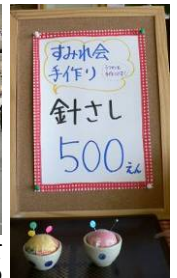 すみれ会
手作り
針さし
500えん